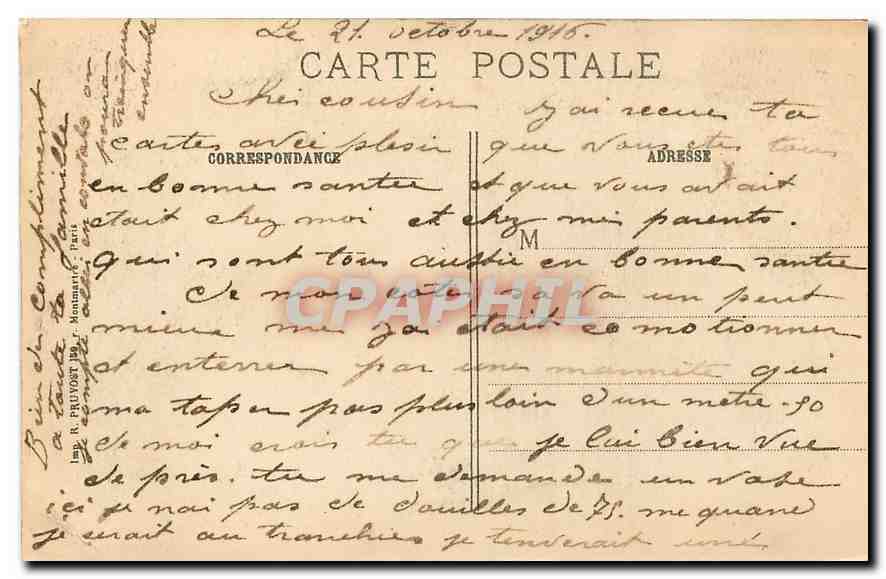 Le 21 octobre 1916.
CARTE POSTALE
Cher cousin j ai recue ta
cartes avec plesir que vous etes tous
CORRESPONDANCE
ADRESSE
en bonne santee et que vous avait
etait chez moi et chez mes parents.
M
qui sont tous aussie en bonne santee
de mon coter sa va un peut
mieux me j'a etait comotionner
et enterrer par une marmite qui
ma taper pas plus loin d'un metre -50
de moi crois tu que je lai bien vue
de près. tu me demande un vase
ici je nai pas de douilles de 75. me quand
je serait au tranchies je tenverait une
Bien des compliment
a toute ta famille
je compte aller en on
poura trinquer
ensemble
Imp. R. PRUVOST 159, r. Montmartre - Paris
CPAPHIL